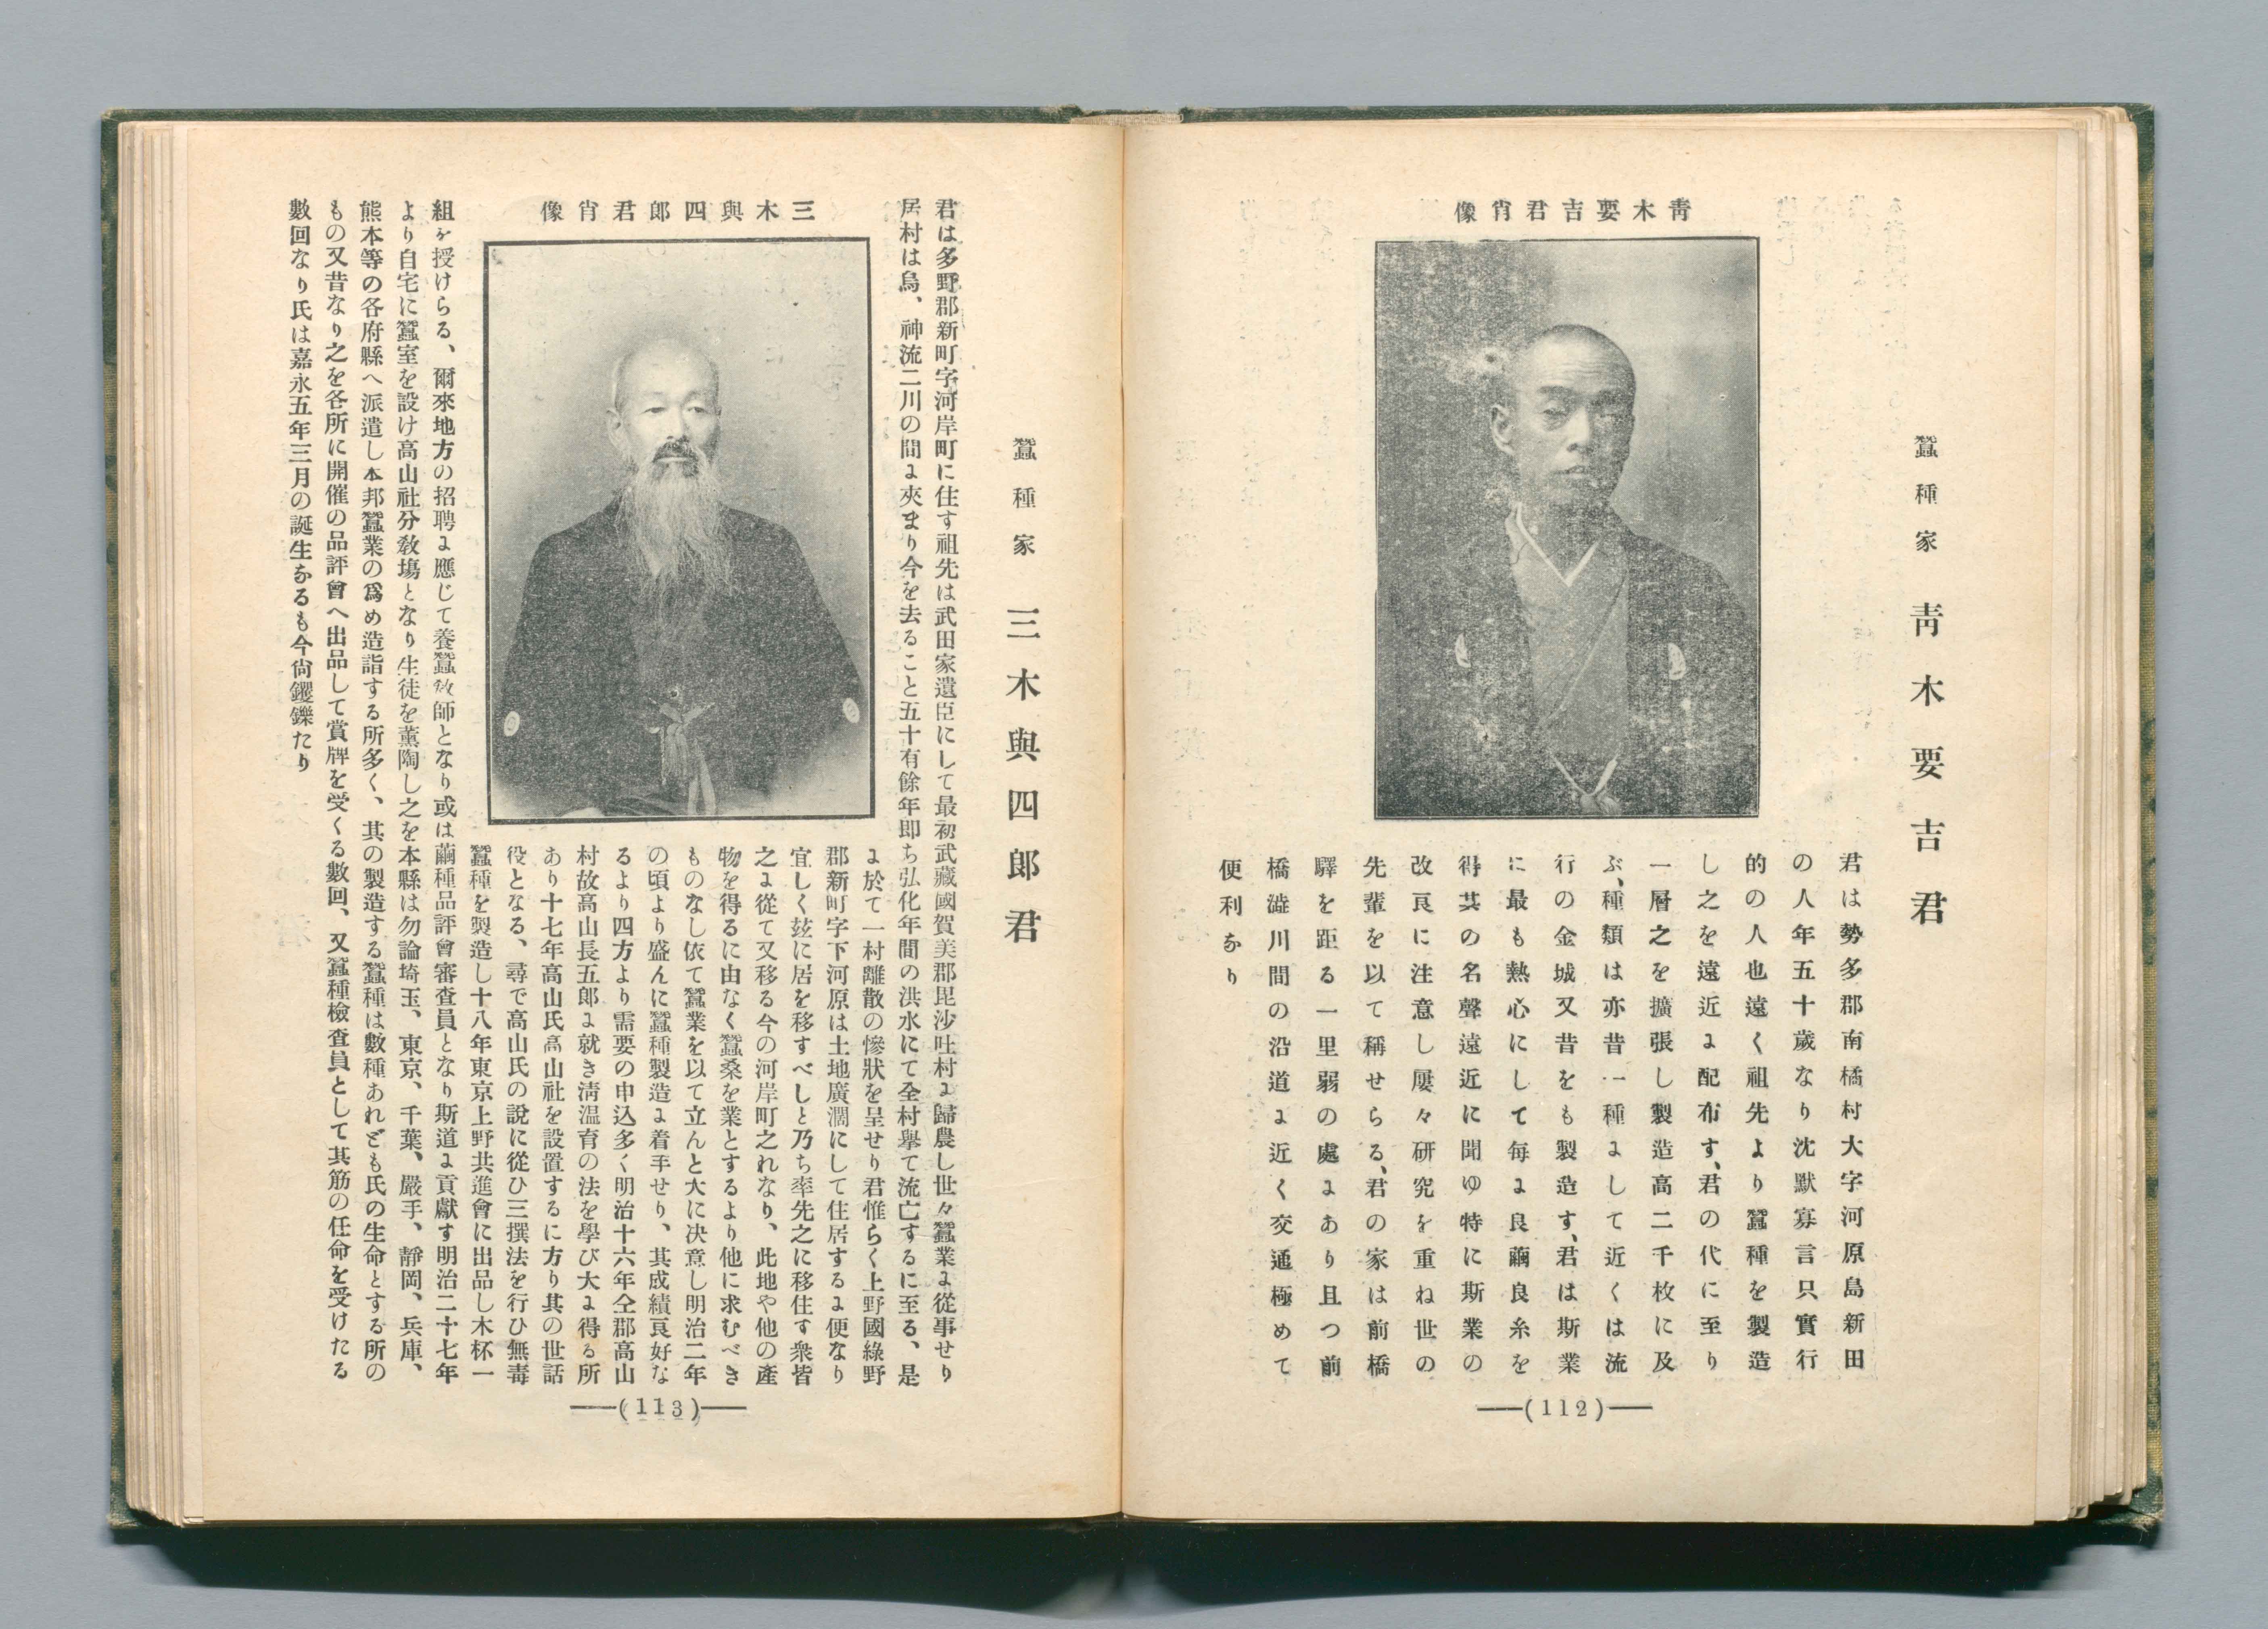 蠶種家 靑木要吉君
靑木要吉君肖像
君は勢多郡南橘村大字河原島新田
の人年五十歲なり沈默寡言只實行
的の人也遠く祖先より蠶種を製造
し之を遠近ょ配布す、君の代に至り
一層之を擴張し製造高二千枚に及
ぶ、種類は亦昔一種ょして近くは流
行の金城又昔をも製造す、君は斯業
に最も熱心にして每ょ良繭良糸を
得其の名聲遠近に聞ゆ特に斯業の
改良に注意し屢々硏究を重ね世の
先輩を以て稱せらる、君の家は前橋
驛を距る一里弱の處ょあり且つ前
橋澁川間の沿道ょ近く交通極めて
便利なり
(112)
蠶種家 三木與四郞君
君は多野郡新町字河岸町に住す祖先は武田家遺臣にして最初武藏國賀美郡毘沙吐村ょ歸農し世々蠶業ょ從事せり
居村は烏、神流二川の間ょ夾まり今を去ること五十有餘年卽ち弘化年間の洪水にて全村擧て流亡するに至る、是
三木與四郞君肖像
ょ於て一村離散の慘狀を呈せり君惟らく上野國綠野
郡新町字下河原は土地廣濶にして住居するょ便なり
宜しく玆に居を移すべしと乃ち率先之に移住す衆皆
之ょ從て又移る今の河岸町之れなり、此地や他の產
物を得るに由なく蠶桑を業とするより他に求むべき
ものなし依て蠶業を以て立んと大に决意し明治二年
の頃より盛んに蠶種製造ょ着手せり、其成績良好な
るより四方より需要の申込多く明治十六年仝郡高山
村故高山長五郞ょ就き淸溫育の法を學び大ょ得る所
あり十七年高山氏高山社を設置するに方り其の世話
役となる、尋で高山氏の說に從ひ三撰法を行ひ無毒
蠶種を製造し十八年東京上野共進會に出品し木杯一
組を授けらる、爾來地方の招聘ょ應じて養蠶敎師となり或は繭種品評會審査員となり斯道ょ貢獻す明治二十七年
より自宅に蠶室を設け高山社分敎塲となり生徒を薰陶し之を本縣は勿論埼玉、東京、千葉、嚴手、靜岡、兵庫、
熊本等の各府縣へ派遣し本邦蠶業の爲め造詣する所多く、其の製造する蠶種は數種あれども氏の生命とする所の
もの又昔なり之を各所に開催の品評會へ出品して賞牌を受くる數回、又蠶種檢查員として其筋の任命を受けたる
數回なり氏は嘉永五年三月の誕生なるも今尙钁鑠たり
(113)